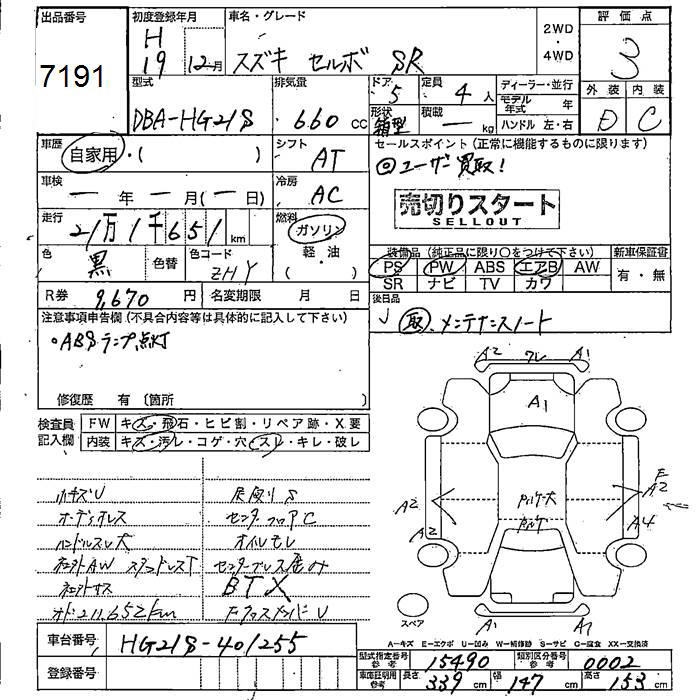 出品番号
7191
初度登録年月
H
19 12月
車名・グレード
スズキ セルボ SR
2WD
・
4WD
評価点
3
外装 内装
D C
型式
DBA-HG21S
排気量
660 cc
ドア
5
定員
4 人
形状
箱型
積載
― kg
ディーラー・並行
モデル年式 年
ハンドル 左・右
車歴
自家用・( )
シフト
AT
セールスポイント(正常に機能するものに限ります)
◎ユーザー買取!
売切りスタート
SELLOUT
車検
― 年 ― 月(― 日)
冷房
AC
走行
21万1千651 km
燃料
ガソリン
軽・油
( )
色
黒
色替
色コード
ZHY
装備品(純正品に限り○をつけて下さい)
新車保証書
PS PW ABS エアB AW
SR ナビ TV カワ
有・無
R券 9,670 円
名変期限 月 日
後日品
取、メンテナンスノート
注意事項申告欄(不具合内容等は具体的に記入して下さい)
・ABSランプ点灯
修復歴 有 (箇所
検査員記入欄
FW キズ・飛石・ヒビ割・リペア跡・X要
内装 キズ・汚レ・コゲ・穴・スレ・キレ・破レ
小キズU
オーディオレス
ハンドルスレ大
オイルモレ
BTX
オド211,652km
A2 A1
A1
A2
A2
E
A2
A4
A1 A1
スペア
A=キズ E=エクボ U=凹み W=補修跡 S=サビ C=腐食 XX=交換済
車台番号
HG21S-401255
登録番号
型式指定番号 参考
15490
類別区分番号 参考
0002
車庫証明用 参考
長さ 339 cm
幅 147 cm
高さ 153 cm